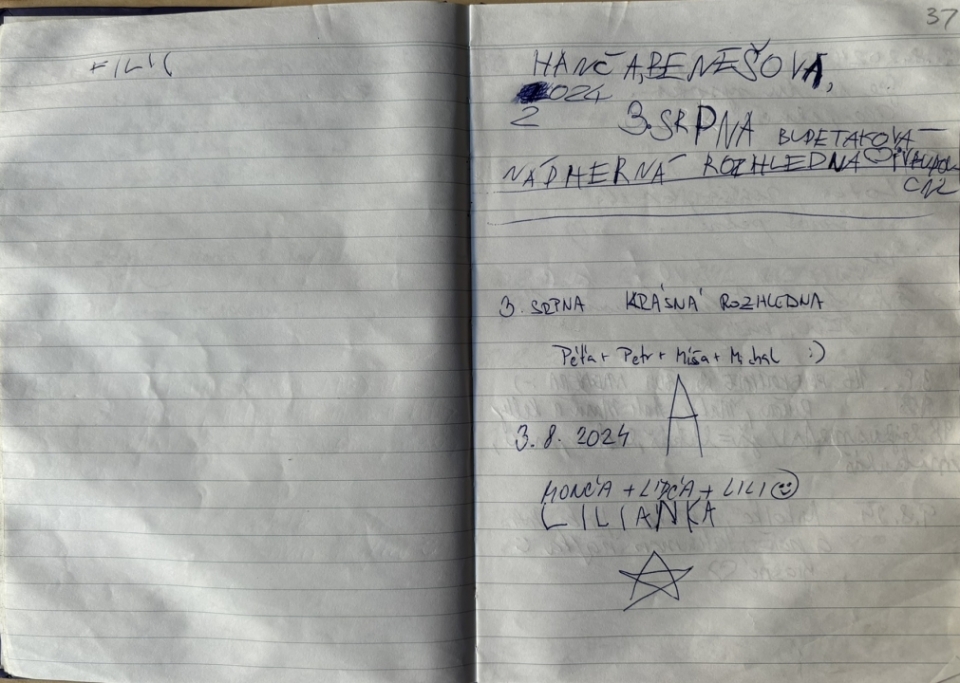 FILIP
37
HANČA, BENEŠOVÁ,
2024
2
3. SRPNA
NÁDHERNÁ ROZHLEDNA
3. SRPNA KRÁSNÁ ROZHLEDNA
Péťa + Petr + Míša + Michal :)
A
3. 8. 2024
MONČA + LIDČA + LILI
LILIANKA